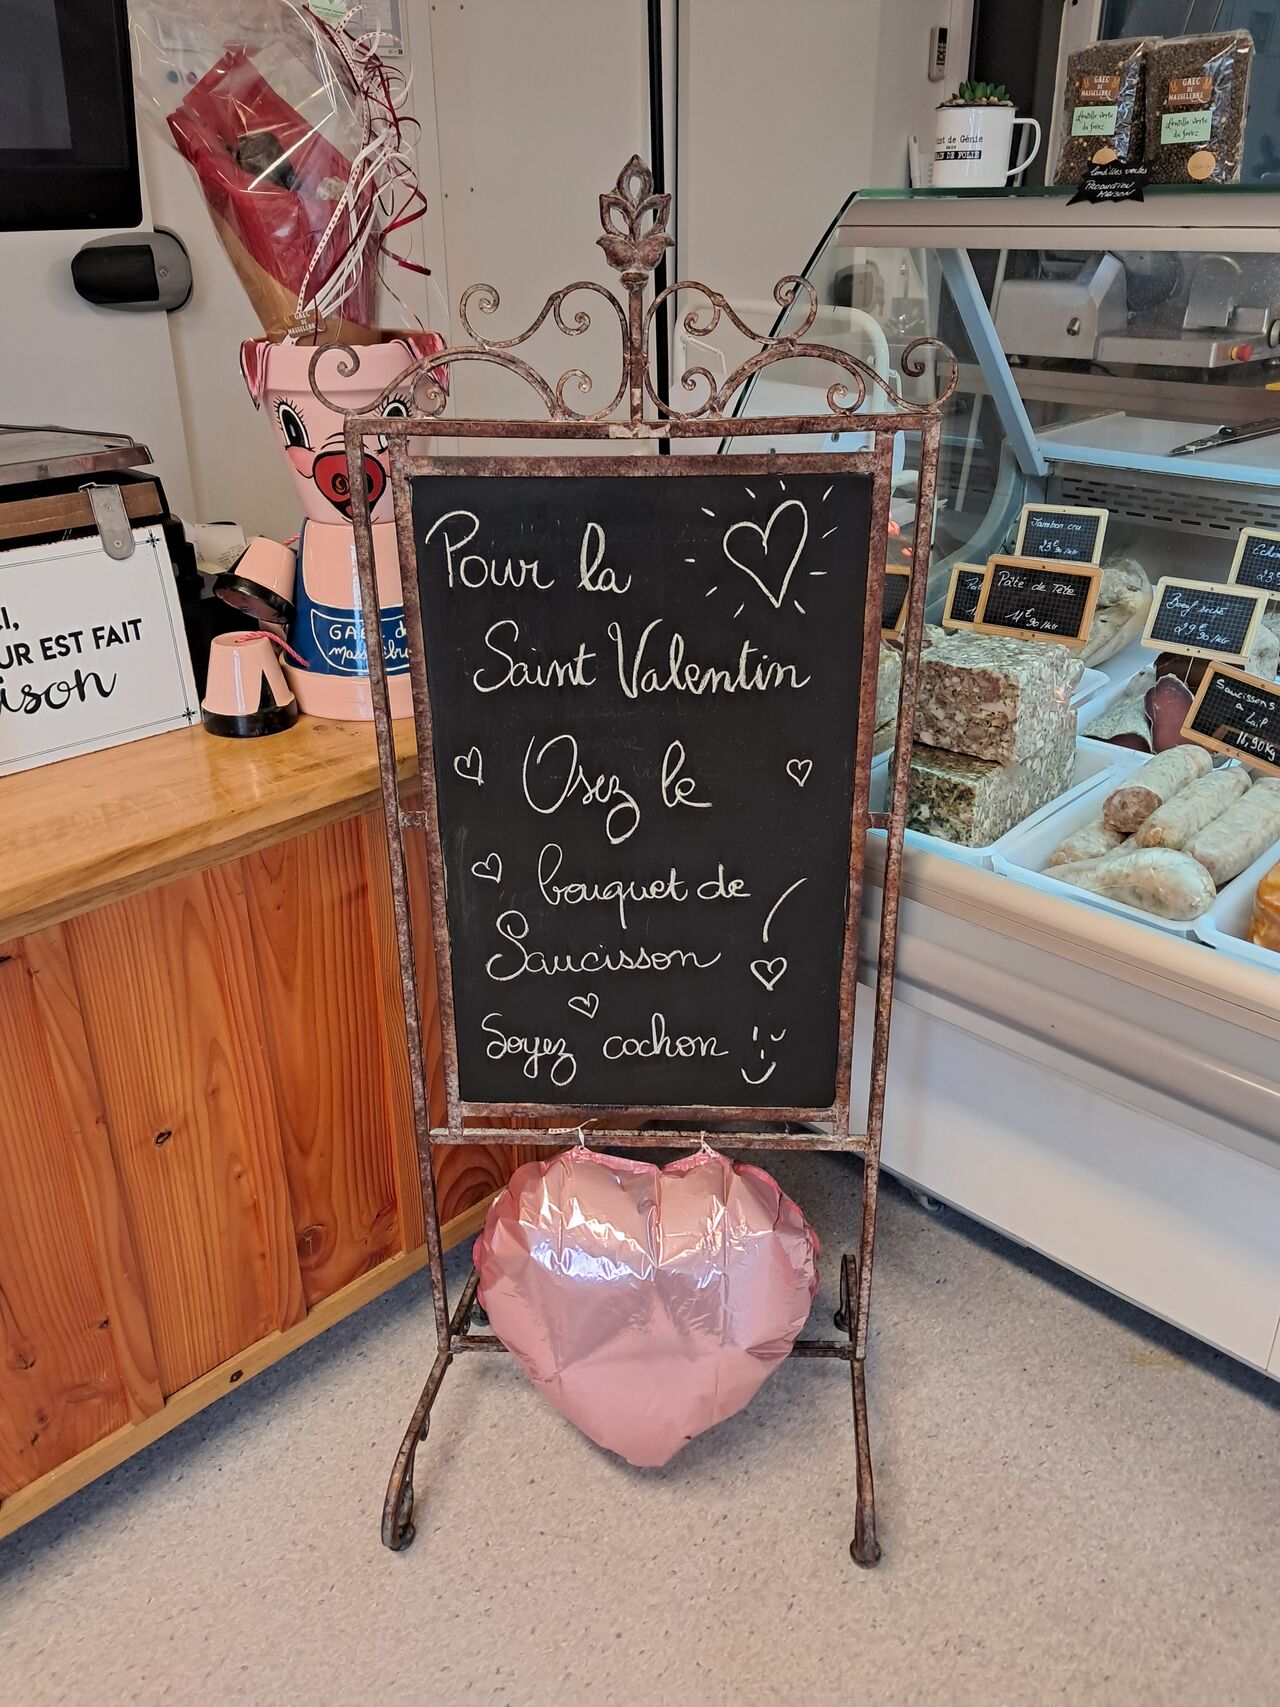 Pour la
Saint Valentin
Osez le
bouquet de
Saucisson
Soyez cochon
GAEC
DE
MASSELEBRE
GAEC de
UR EST FAIT
ison
GAEC
DE
MASSELEBRE
Lentille verte
du forez
GAEC
DE
MASSELEBRE
Lentille verte
du forez
lentilles vertes
PRODUCTION
MAISON
de Génie
DE FOLIE
Jambon cru
23€90/kg
Pâté de Tête
11€90/kg
Boeuf séché
29€90/kg
Saucissons
à cuir
16,90Kg